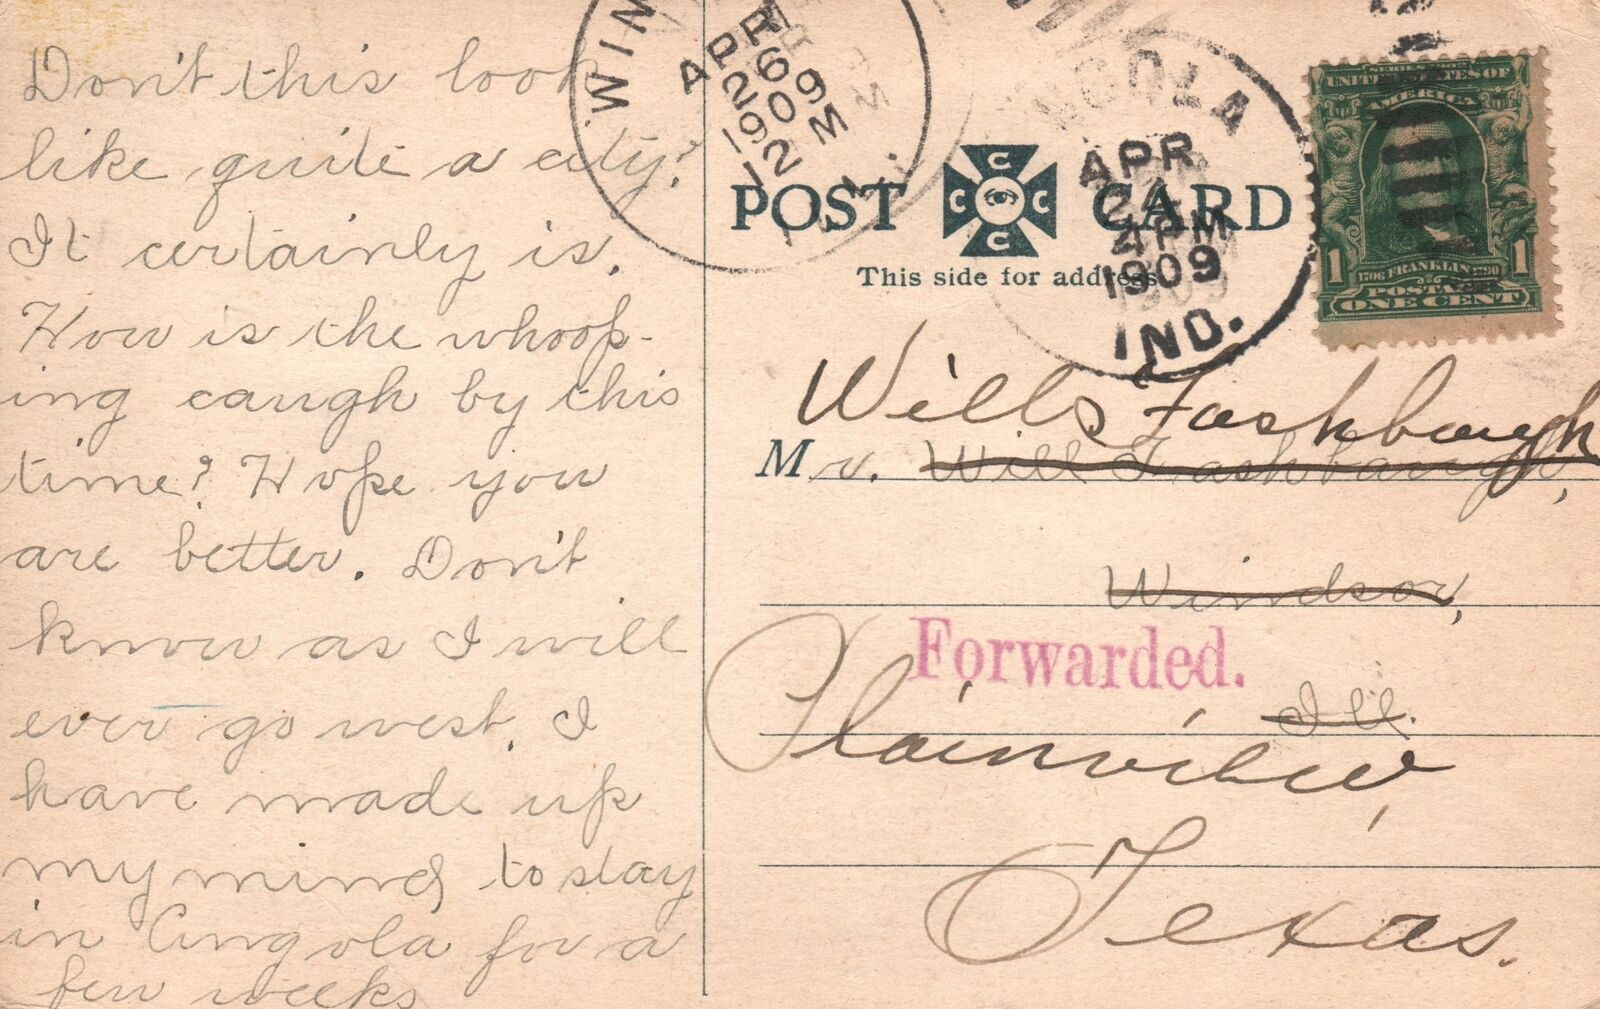 Don't this look
like quite a city?
It certainly is.
How is the whoop-
ing caugh by this
time? Hope you
are better. Don't
know as I will
ever go west. I
have made up
my mind to stay
in Angola for a
few weeks
WIN
APR
26
12 M
1909
POST CARD
C C C C
This side for address.
NGOLA
APR
24
4 PM
1909
IND.
SERIES 1902
UNITED STATES OF
AMERICA
1 1706 FRANKLIN 1790 1
POSTAGE
ONE CENT
Wills Fashbaugh
Mr. Will Fashbaugh,
Windsor,
Forwarded.
Ill.
Plainview,
Texas.